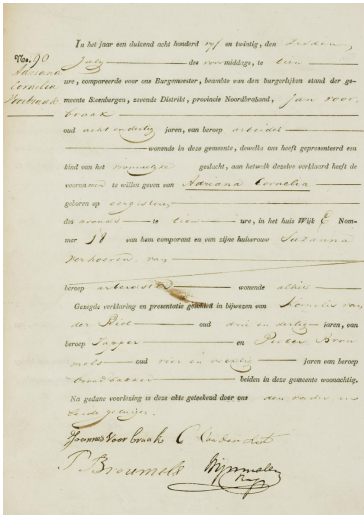 No. 90
Adriana
Cornelia
Voorbraak
In het jaar een duizend acht honderd vyf en twintig, den
July des voormiddags, te tien
ure, compareerde voor ons Burgemeester, beambte van den burgerlijken stand der ge-
meente Steenbergen, zevende Distrikt, provincie Noordbrabend, Jan voor
braak
oud acht en dertig jaren, van beroep arbeider
wonende in deze gemeente, dewelke ons heeft gepresenteerd een
kind van het vrouwelyke geslacht, aan hetwelk dezelve verklaard heeft de
voornamen te willen geven van Adriana Cornelia
geboren op eergisteren
des avonds te tien ure, in het huis Wijk E Num-
mer 18 van hem comparant en van zijne huisvrouw Suzanna
Verhoeven, van
beroep arbeidster wonende alhier
Gezegde verklaring en presentatie geschied in bijwezen van Kornelis van
der Riet oud drie en dertig jaren, van
beroep Tapper en Pieter Brou
mels oud vier en jaren van beroep
broodbakker beiden in deze gemeente woonachtig.
Na gedane voorlezing is deze akte geteekend door ons den vader en
beide getuigen.
Joannes Voorbraak C Vanderriet
P. Broumels